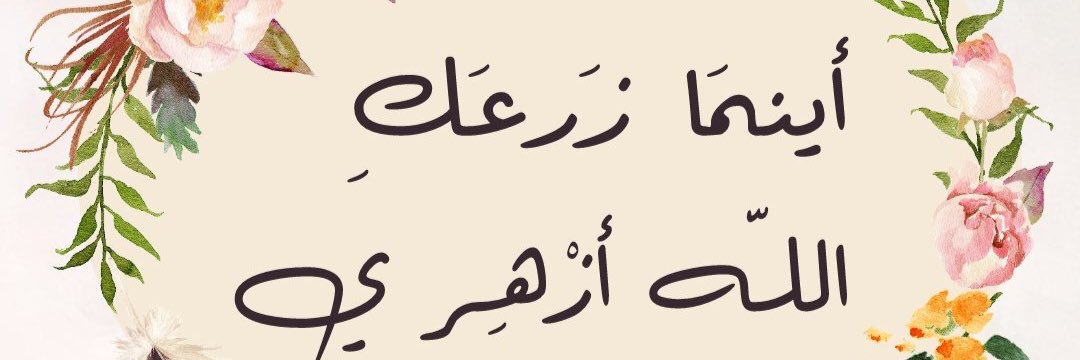 أينمَا زَرَعَكِ
اللّه أزْهِري